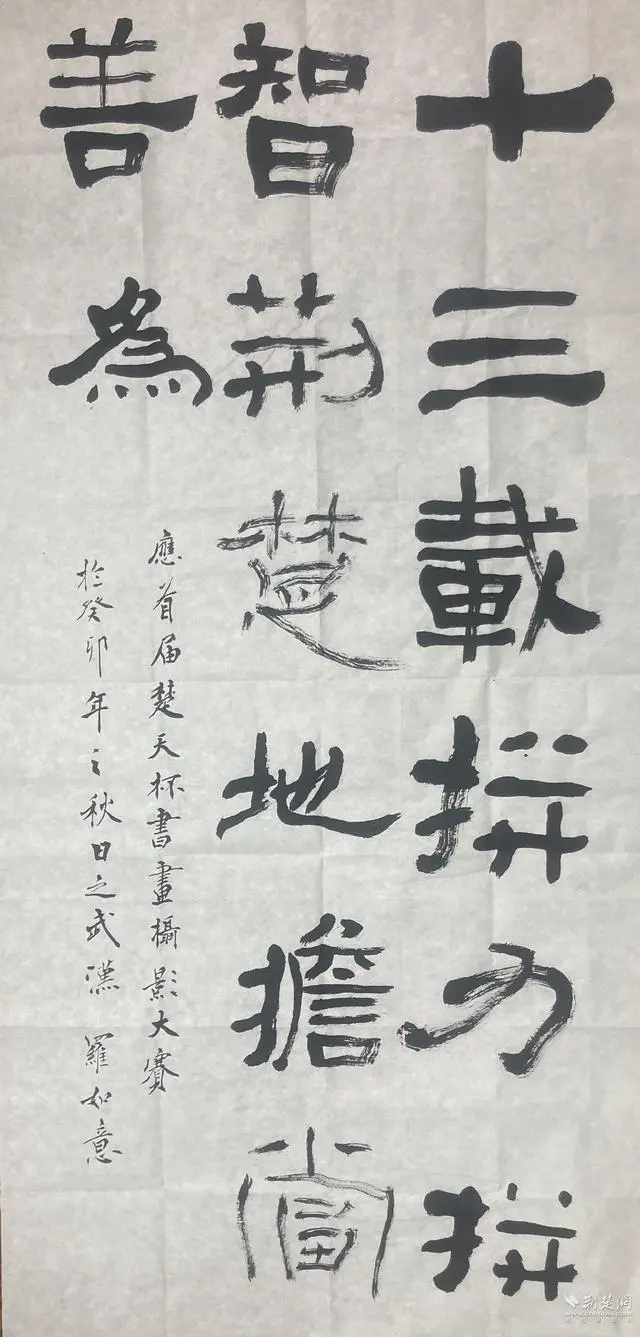 十三載拼力拼
智荊楚地擔當
善為
應首届楚天杯書畫攝影大賽
於癸卯年之秋日之武漢 羅如意
荆楚网